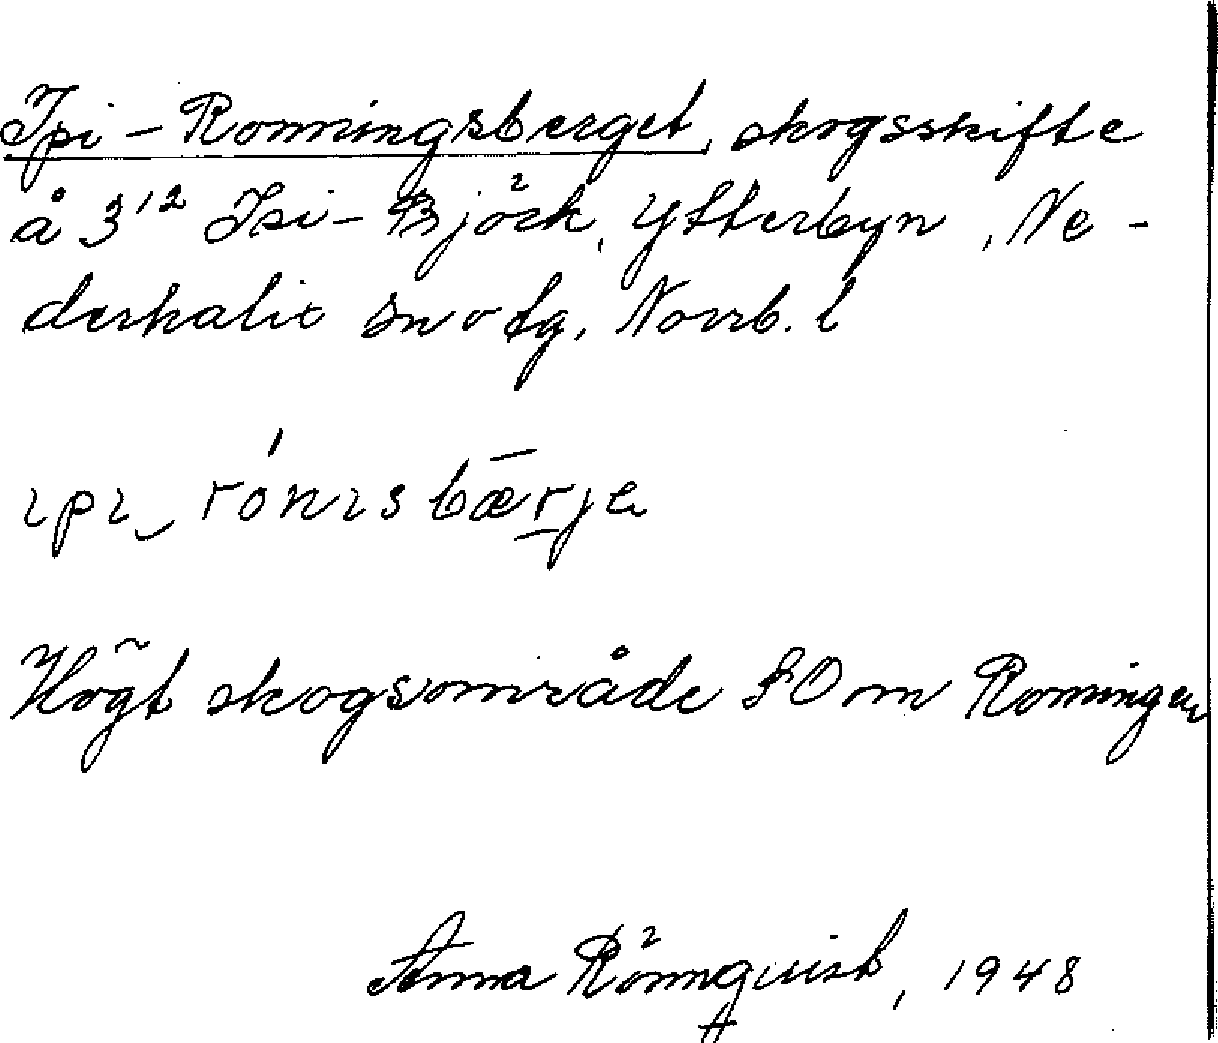 Ipi-Ronningsberget, skogsskifte
å 3¹² Isi-Björk, Ytterbyn, Ne-
derkalix sn o tg, Norrb. l
ɩpɩ‿rónɩsbærja
Högt skogsområde SO om Romingen
Anna Rönnquist, 1948